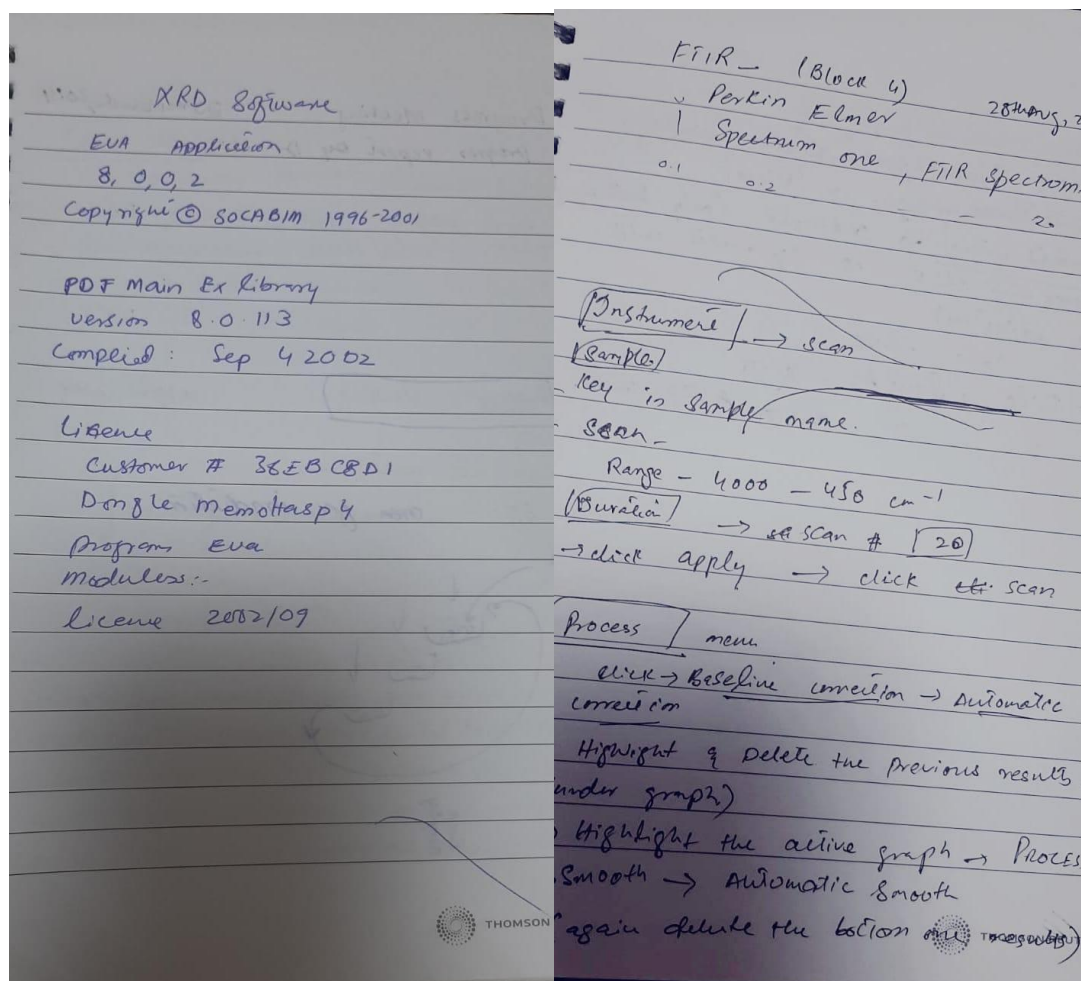 XRD Software
EVA Application
8, 0, 0, 2
Copyright © SOCABIM 1996-2001
PDF Main Ex Library
version 8.0.113
Compiled : Sep 4 2002
Lisence
Customer # 38EBCBD1
Dongle MemoHasp4
Program Eva
Modules:-
license 2002/09
THOMSON
FTIR - (Block 4)
28th Aug, 2
Perkin Elmer
1 Spectrum one, FTIR spectrom
0.1 0.2 - 20
Instrument → scan
Sample
Key in sample name.
- Scan -
Range - 4000 - 450 cm-1
Duration → scan # 20
→ click apply → click scan
Process menu
click → Baseline correction → Automatic
correction
Highlight & Delete the previous results
under graph)
Highlight the active graph → PROCES
Smooth → Automatic Smooth
again delete the bottom results)